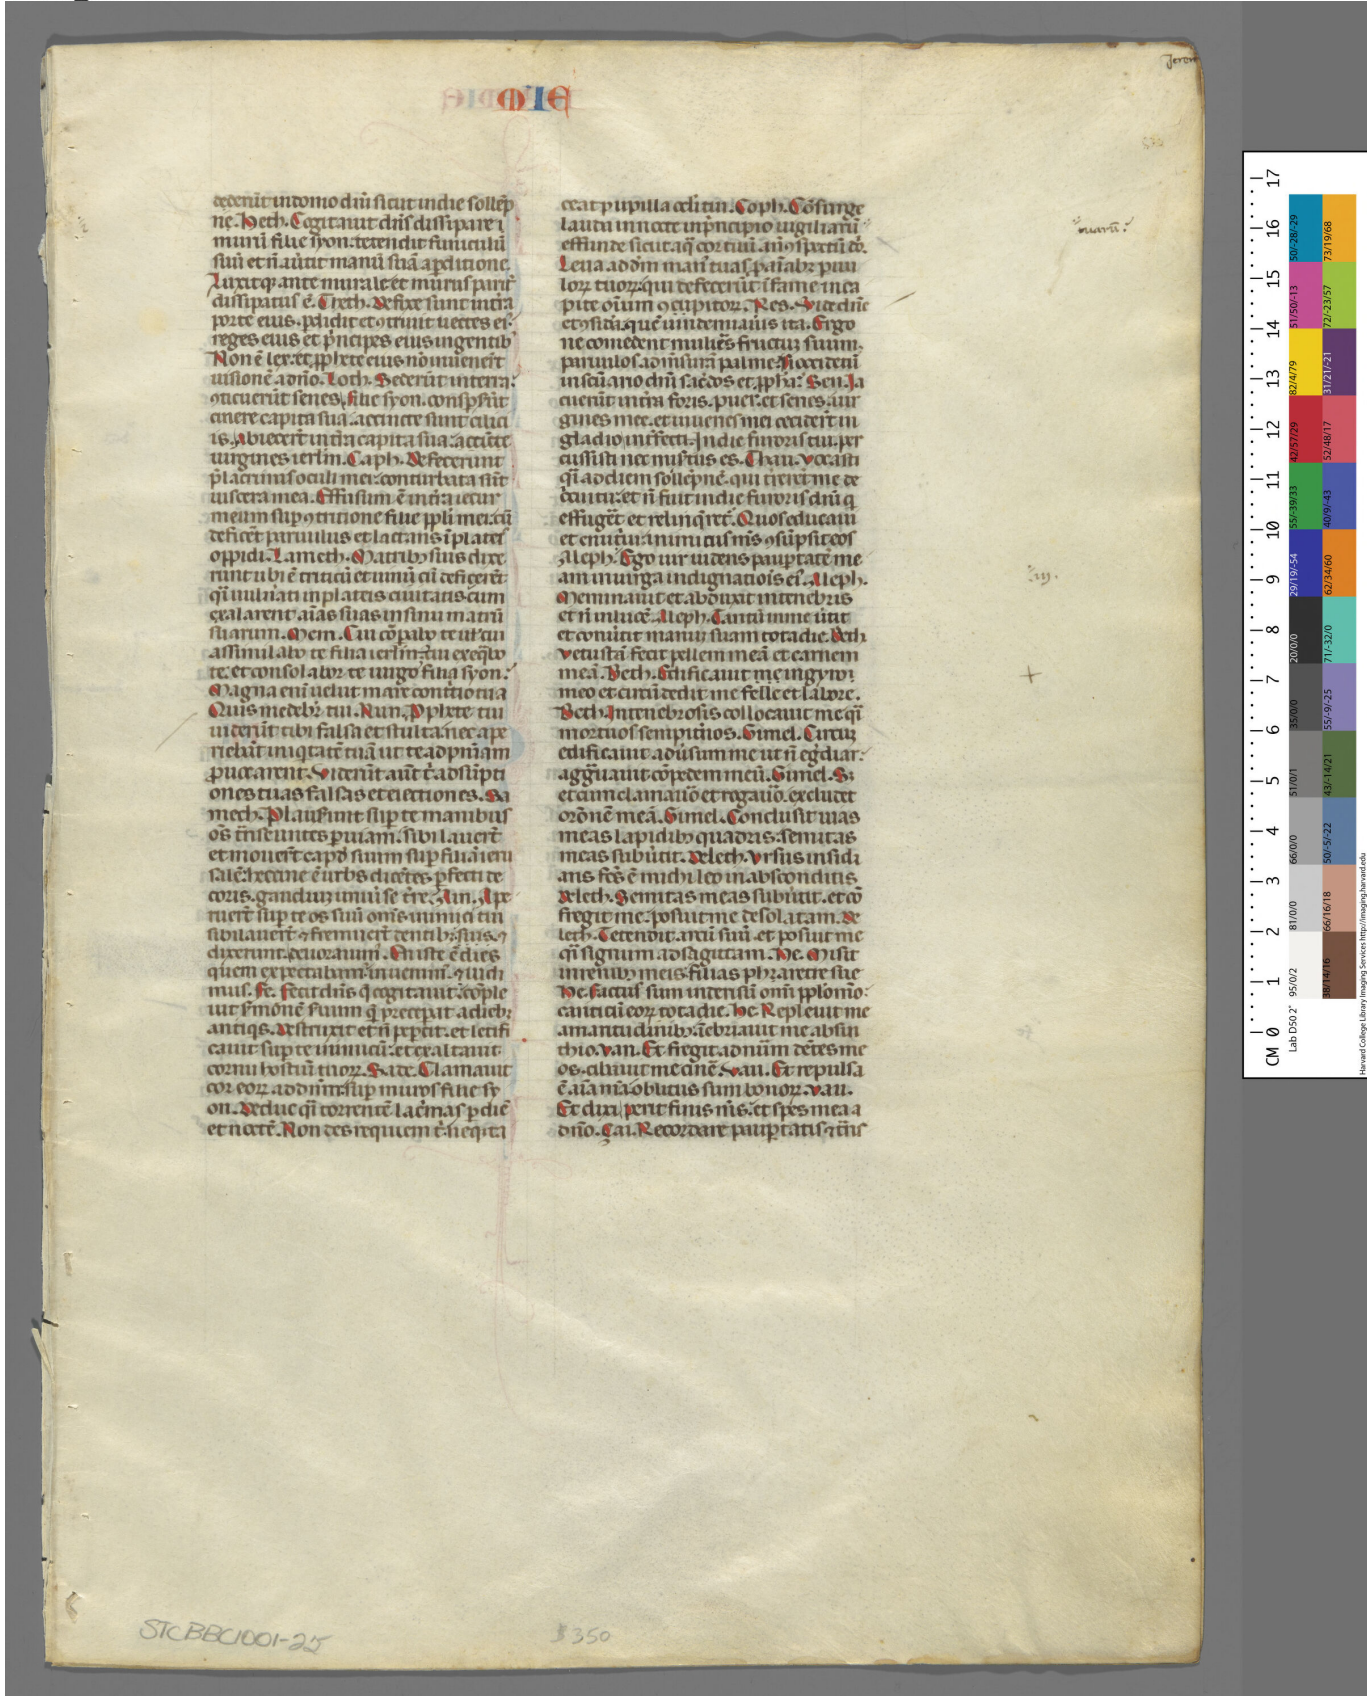 MIE
Jerem
dederūt in domo dn̄i sicut in die sollēp
ne. Heth. Cogitauit dn̄s dissipare
murū filie syon: tetendit funiculū
suū et n̄ au̇tit manū suā a p̱ditione.
Luxitq; ante murale et murus parit̄
dissipatus ē. Theth. Defixe sunt in t̄ra
porte eius. p̱didit et ꝯtriuit uectes ei᷒.
reges eius et p̄ncipes eius in gentib᷒
Non ē lex: et p̱phete eius nō inuenerūt
uisionē a dn̄o. Ioth. Sederūt in terra:
ꝯticuerūt senes filie syon. consp̱serūt
cinere capita sua: accincte sunt cilici
is. Abiecerūt in t̄ra capita sua: accīcte
uirgines ierl̄m. Caph. Defecerunt
p̄ lacrimis oculi mei: conturbata sūt
uiscera mea. Effusum ē in t̄ra iecur
meum sup̱ ꝯtritione filie pp̄li mei: cū
deficēt paruulus et lactans ī plateis
oppidi. Lameth. Matrib᷒ suis dixe
runt ubi ē triticū et uinū cū deficerēt
qͥ uulnati in plateis ciuitatis cum
exalarent aīas suas in sinu matrū
suarum. Mem. Cui cōpabo te ul̄ cui
assimilabo te filia ierl̄m: cui exeq̄bo
te. et consolabor te uirgo filia syon.
Magna eni uelut mare contritio tua
Quis medebit̄ tui. Nun. Prophete tui
uiderūt tibi falsa et stulta. nec ape
riebāt iniq̇tatē tuā ut te ad pn̄iam
ꝓuocarent. Viderūt aūt t̄ adsūpti
ones tuas falsas et eiectiones. Sa
mech. Plauserunt sup̱ te manibus
oēs t̄nseuntes p̱ uiam. sibilauerūt
et mouerūt capd̄ suum sup̱ filiā ieru
salē: heccine ē urbs dicētes p̱fecti de
coris. gaudium uniu̇se t̄re. Ain. Ape
ruerūt sup̱ te os suū om̄s inimici tui
sibilauerūt ⁊ fremuerūt dentib᷒ suis. ⁊
dixerunt. deuorauim᷒. En iste ē dies
quem expectabam᷒ inuenim᷒. ⁊ uidi
mus. Fe. Fecit dn̄s q̄ cogitauit: cōple
uit s̄monē suum q̄ precepat a dieb᷒
antiqͥs. Destruxit et n̄ pep̱cit. et letifi
cauit sup̱ te inimicū: et exaltauit
cornu hostiū tuoꝝ. Sade. Clamauit
cor eoꝝ ad dn̄m: sup̱ muros filie sy
on. Deduc qͥ torrentē lac̄mas p̱ diē
et noctē. Non des requiem t̄: neq̇ ta
ceat pupilla oculi tui. Coph. Cōsurge
lauda in nocte in p̄ncipio uigiliarū
effunde sicut aq̄ cor tuū an̄ ꝯspectū dn̄i.
Leua ad dm̄ man᷒ tuas p̱ aīab᷒ paruu
loꝝ tuoꝝ: qui defecerūt ī fame in ca
pite oīum ꝯpitoꝝ. Res. Vide dn̄e
et ꝯsidā. quē uindemiaūis ita. Ergo
ne comedent mulieēs fructuꝫ suum.
paruulos ad m̄surā palme: si occidetur
in scūario dn̄i sac̄dos et pp̄ha. Sen. Ia
cuerūt in t̄ra foris. puer. et senes. uir
gines mee. et iuuenes mei ceciderūt in
gladio int̄fecti. In die furoris tui. per
cussisti nec mis̄tus es. Thau. Vocasti
qͥ ad diem sollēpnē. qui tererēt me de
circuitu: et n̄ fuit in die furoris dn̄i q̇
effugēt et relinq̄ret. Quos educaui
et enutriui inimicus m̄s ꝯsūpsit eos
Aleph. Ego uir uidens paup̱tatē me
am in uirga indignatiōis ei᷒. Aleph.
Me minauit et abduxit in tenebris
et n̄ in lucē. Aleph. Tantū in me u̇tit
et conu̇tit manuꝫ suam tota die. Beth
Vetustā fecit pellem meā et carnem
meā. Beth. Edificauit me in gyro
meo et circūdedit me felle et labore.
Beth. In tenebrosis collocauit me qͥ
mortuos sempit̄nos. Gimel. Circuꝫ
edificauit adu̇sum me ut n̄ eg̱diar.
aggͣuauit cōpedem meū. Gimel. Sꝫ
et cum clamau̇o et rogau̇o. excludet
orōnē meā. Gimel. Conclusit uias
meas lapidib᷒ quadris: semitas
meas subu̇tit. Deleth. Vrsus insidi
ans fc̄s ē michi leo in absconditis
Deleth. Semitas meas subu̇tit. et cō
fregit me. posuit me desolatam. De
leth. Tetendit. arcū suū. et posuit me
qͥ signum ad sagittam. He. Misit
in renib᷒ meis filias pharetre sue
He. Factus sum in derisū om̄i pplo m̄o:
canticū eoꝝ tota die. He. Repleuit me
amaritudinib᷒. īebriauit me absin
thio. Vau. Et fregit ad nūm dētes me
os. cibauit me cinē. Vau. Et repulsa
ē aīa m̄a oblitus sum bonoꝝ. Vau.
Et dixi periit finis m̄s. et spes mea a
dn̄o. Zai. Recordare paup̱tatis ⁊ t̄ns
tuarū
+
STCBBC1001-25
$350